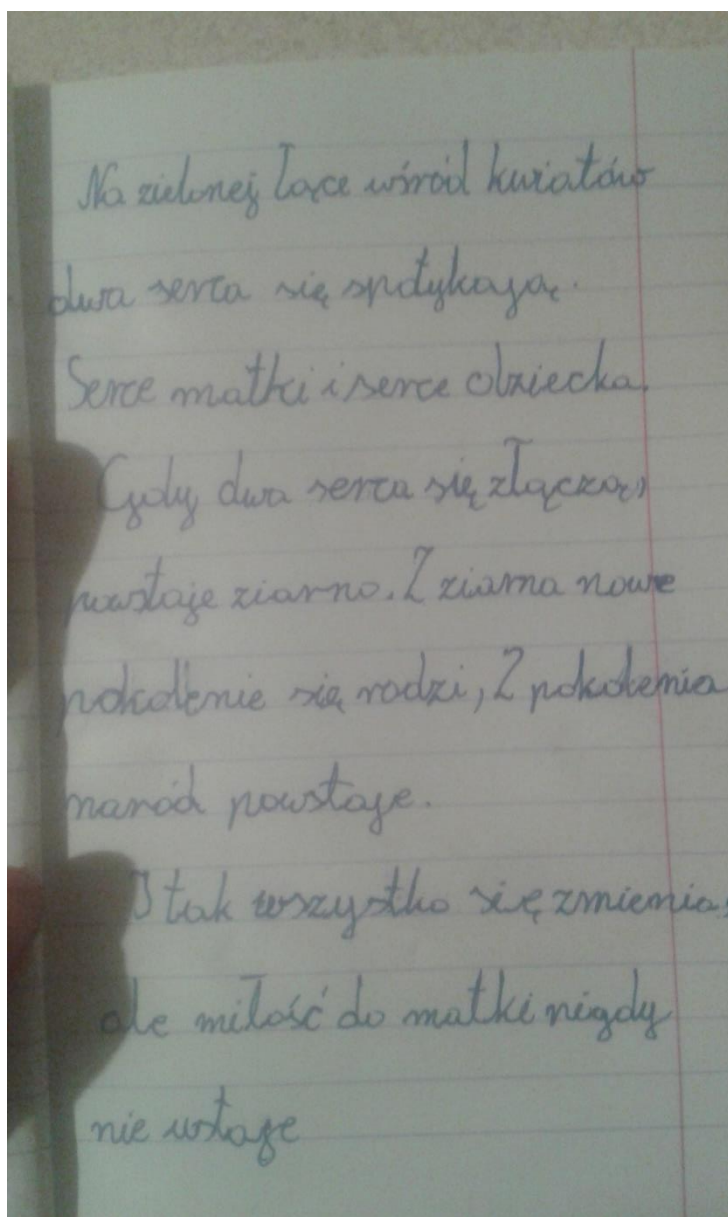 Na zielonej łące wśród kwiatów
dwa serca się spotykają.
Serce matki i serce dziecka.
Gdy dwa serca się złączą,
powstaje ziarno. Z ziarna nowe
pokolenie się rodzi, Z pokolenia
naród powstaje.
I tak wszystko się zmienia,
ale miłość do matki nigdy
nie ustaje